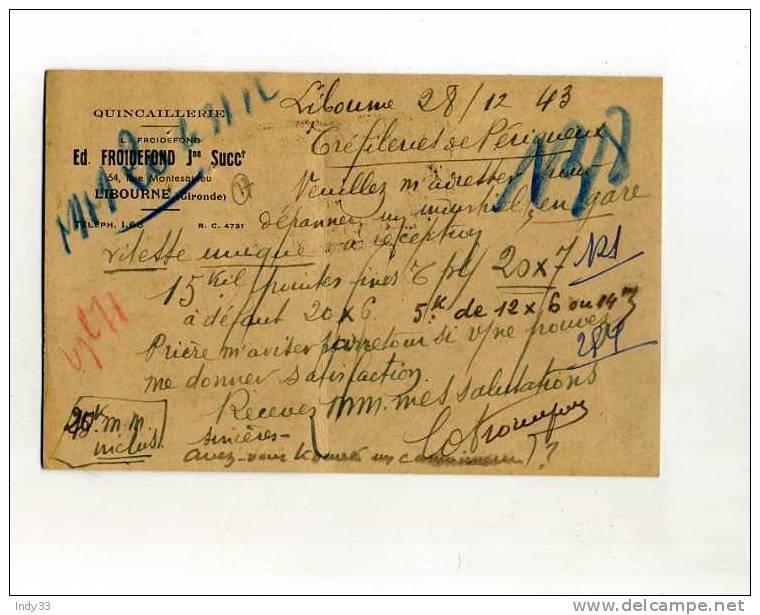 QUINCAILLERIE
LE FROIDEFOND
Ed. FROIDEFOND Jne Succr
54, rue Montesquieu
LIBOURNE (Gironde)
TÉLÉPH. 1.60 R. C. 4731
17
Libourne 28/12 43
Tréfileries de Périgueux
Veuillez m'adresser pour
dépanner un industriel, en gare
vitesse unique à réception
15 kil pointes fines T pl 20x7
à défaut 20x6. 5.k de 12x6 ou 14
Prière m'aviser par retour si v/ne pouvez
me donner satisfaction.
Recevez MM. mes salutations
sincères-
avez-vous trouvé un ?
M.M.
inclus.
delcampe.net
Indy33